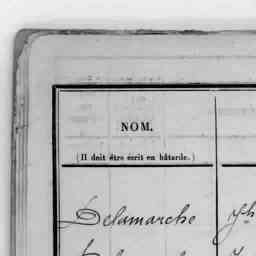 NOM.
(Il doit être écrit en bâtarde.)
Delamarche